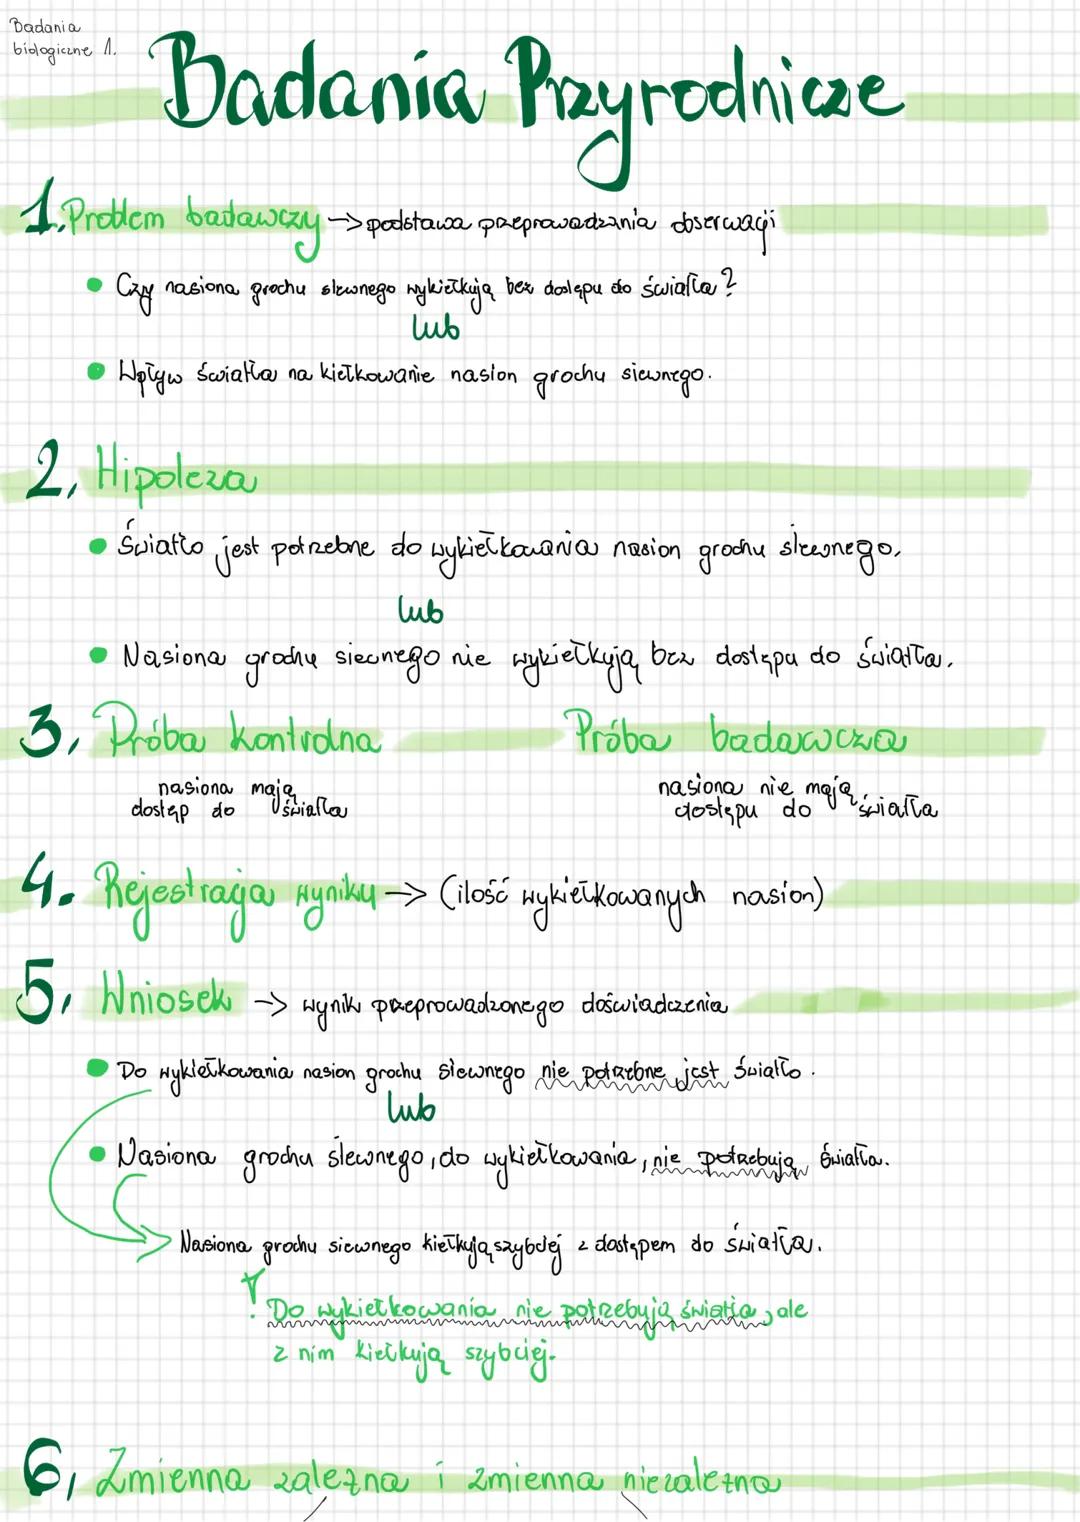 Badania
biologiczne 1.
Badania Przyrodnicze
1. Problem badawczy → podstawa przeprowadzania obserwacji
• Czy nasiona grochu siewnego wykiełkują bez dostępu do światła?
lub
• Wpływ światła na kiełkowanie nasion grochu siewnego.
2. Hipoteza
• Światło jest potrzebne do wykiełkowania nasion grochu siewnego.
lub
• Nasiona grochu siewnego nie wykiełkują bez dostępu do światła.
3. Próba kontrolna Próba badawcza
nasiona mają dostęp do światła
nasiona nie mają dostępu do światła
4. Rejestracja wyniku → (ilość wykiełkowanych nasion)
5. Wniosek → wynik przeprowadzonego doświadczenia
• Do wykiełkowania nasion grochu siewnego nie potrzebne jest światło.
lub
• Nasiona grochu siewnego, do wykiełkowania, nie potrzebują światła.
Nasiona grochu siewnego kiełkują szybciej z dostępem do światła.
! Do wykiełkowania nie potrzebują światła, ale
z nim kiełkują szybciej.
6. Zmienna zależna i zmienna niezależna